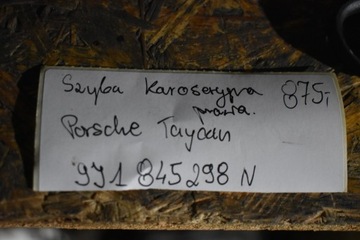 Szyba Karoseryjna 875,-
prawa.
Porsche Taycan
9J1 845 298 N